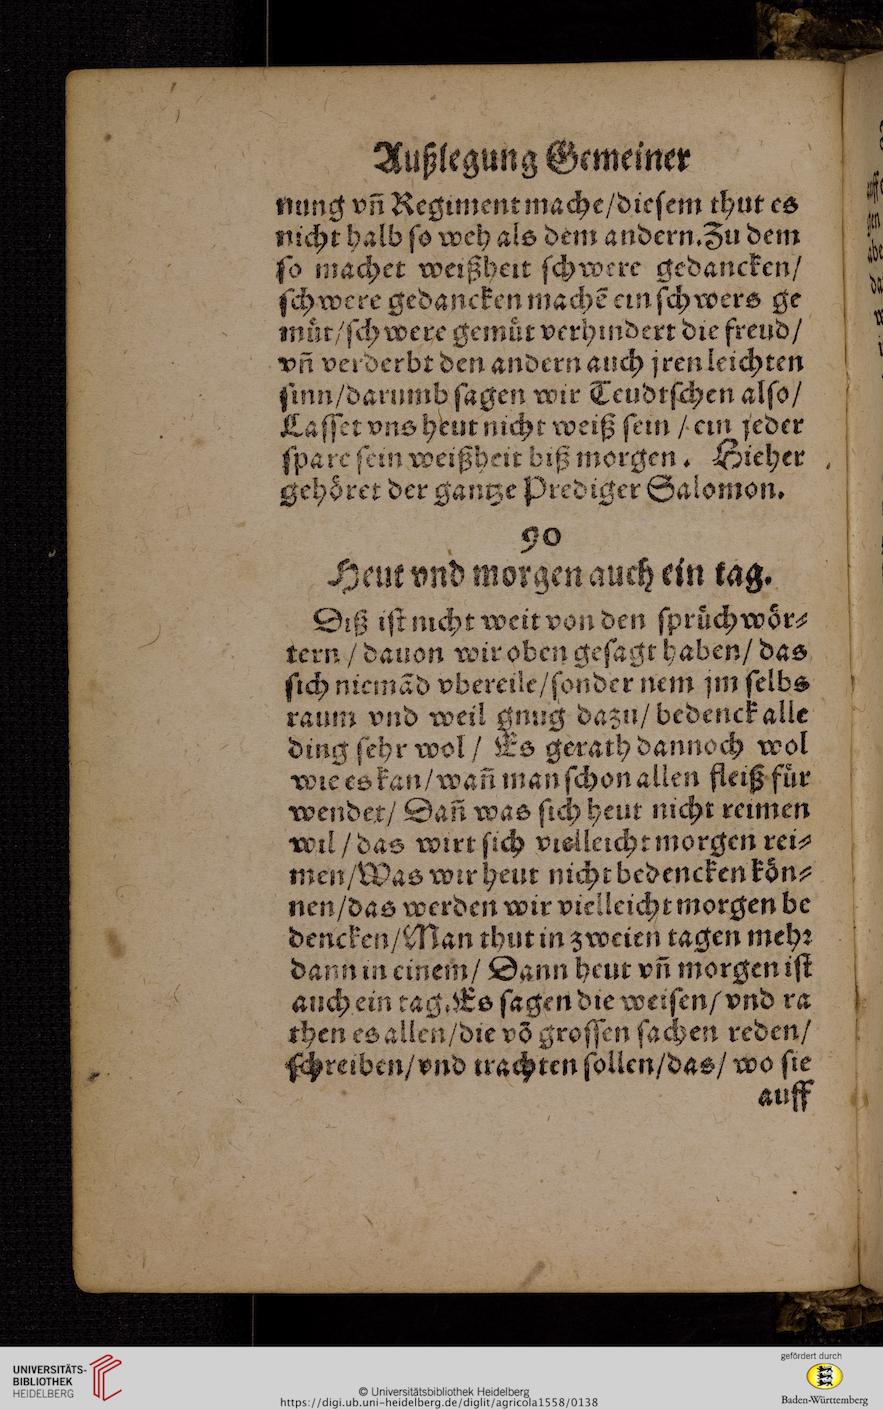 Außlegung Gemeiner
nung vn̄ Regiment mache/diesem thut es
nicht halb so weh als dem andern.Zu dem
so machet weißheit schwere gedancken/
schwere gedancken machē ein schwers ge
müt/schwere gemüt verhindert die freud/
vn̄ verderbt den andern auch jren leichten
sinn/darumb sagen wir Teudtschen also/
Lasset vns heut nicht weiß sein / ein jeder
spare sein weißheit biß morgen. Hieher
gehöret der gantze Prediger Salomon.
90
Heut vnd morgen auch ein tag.
Diß ist nicht weit von den sprüchwör⸗
tern / dauon wir oben gesagt haben/ das
sich niemād vbereile/sonder nem jm selbs
raum vnd weil gnug dazu/ bedenck alle
ding sehr wol / Es gerath dannoch wol
wie es kan/wan̄ man schon allen fleiß für
wendet/ Dan̄ was sich heut nicht reimen
wil / das wirt sich vielleicht morgen rei⸗
men/Was wir heut nicht bedencken kön⸗
nen/das werden wir vielleicht morgen be
dencken/Man thut in zweien tagen mehr
dann in einem/ Dann heut vn̄ morgen ist
auch ein tag.Es sagen die weisen/vnd ra
then es allen/die vō grossen sachen reden/
schreiben/vnd trachten sollen/das/ wo sie
auff
UNIVERSITÄTS-
BIBLIOTHEK
HEIDELBERG
© Universitätsbibliothek Heidelberg
https://digi.ub.uni-heidelberg.de/diglit/agricola1558/0138
gefördert durch
Baden-Württemberg